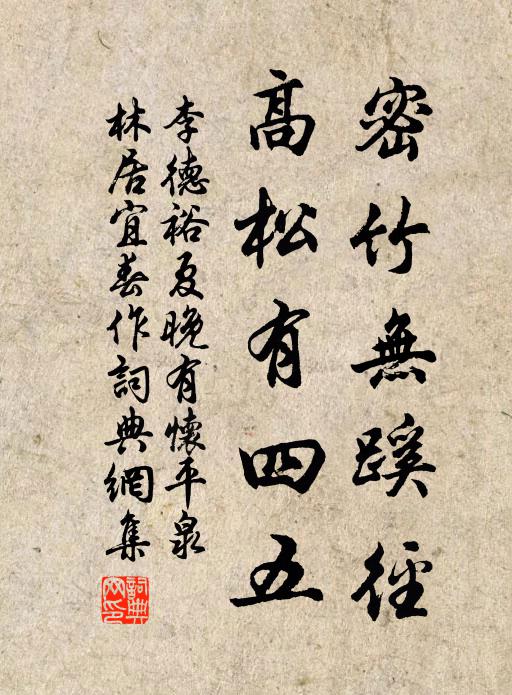 密竹無蹊徑
高松有四五
李德裕夏晚有懷平泉
林居宜春作詞典網集
詞典网印